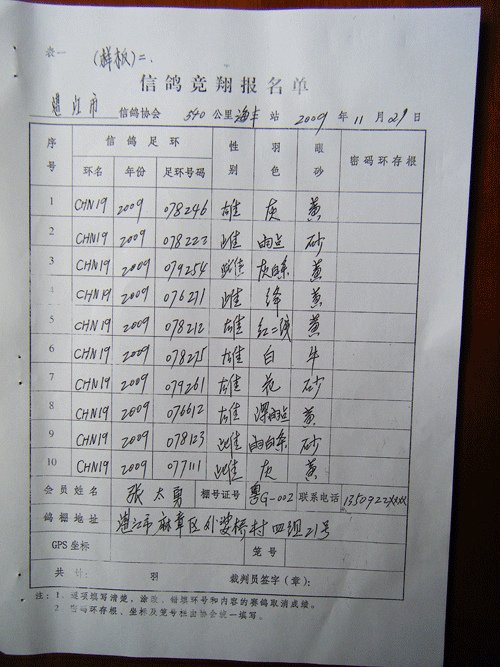 表一 (样板)二.
信鸽竞翔报名单
湛江市 信鸽协会 540 公里 海丰 站 2009 年 11 月 29 日
序号 信鸽足环 性别 羽色 眼砂 密码环存根
环名 年份 足环号码
1 CHN19 2009 078246 雄 灰 黄
2 CHN19 2009 078222 雌 雨点 砂
3 CHN19 2009 079254 雌 灰白条 黄
4 CHN19 2009 076271 雌 绛 黄
5 CHN19 2009 078212 雄 红二线 黄
6 CHN19 2009 078275 雄 白 牛
7 CHN19 2009 079261 雄 花 砂
8 CHN19 2009 076612 雄 深雨点 黄
9 CHN19 2009 078123 雌 雨白条 砂
10 CHN19 2009 077111 雌 灰 黄
会员姓名 张太勇 棚号证号 粤G-002 联系电话 1350922xxxx
鸽棚地址 湛江市麻章区外婆桥村四组21号
GPS坐标 笼号
共计: 羽 裁判员签字(章):
注:1、逐项填写清楚,涂改、错填环号和内容的赛鸽取消成绩。
2、密码环存根、坐标及笼号栏由协会统一填写。